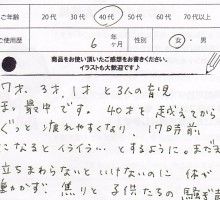 ご年齢 20代 30代 40代 50代 60代 70代以上
ご使用歴 6 年 ヶ月 性別 女・男
商品をお使い頂いたご感想をお書きください。
イラストも大歓迎です♪
7才、3才、1才と3人の育児
真っ最中です。40才を越えてから
ぐっと疲れやすくなり、17時前
になるとイライラ…とするように。まだまだ
立ちまわらないといけないのに 体が
動かず 焦りと子供たちの騒ぎ声